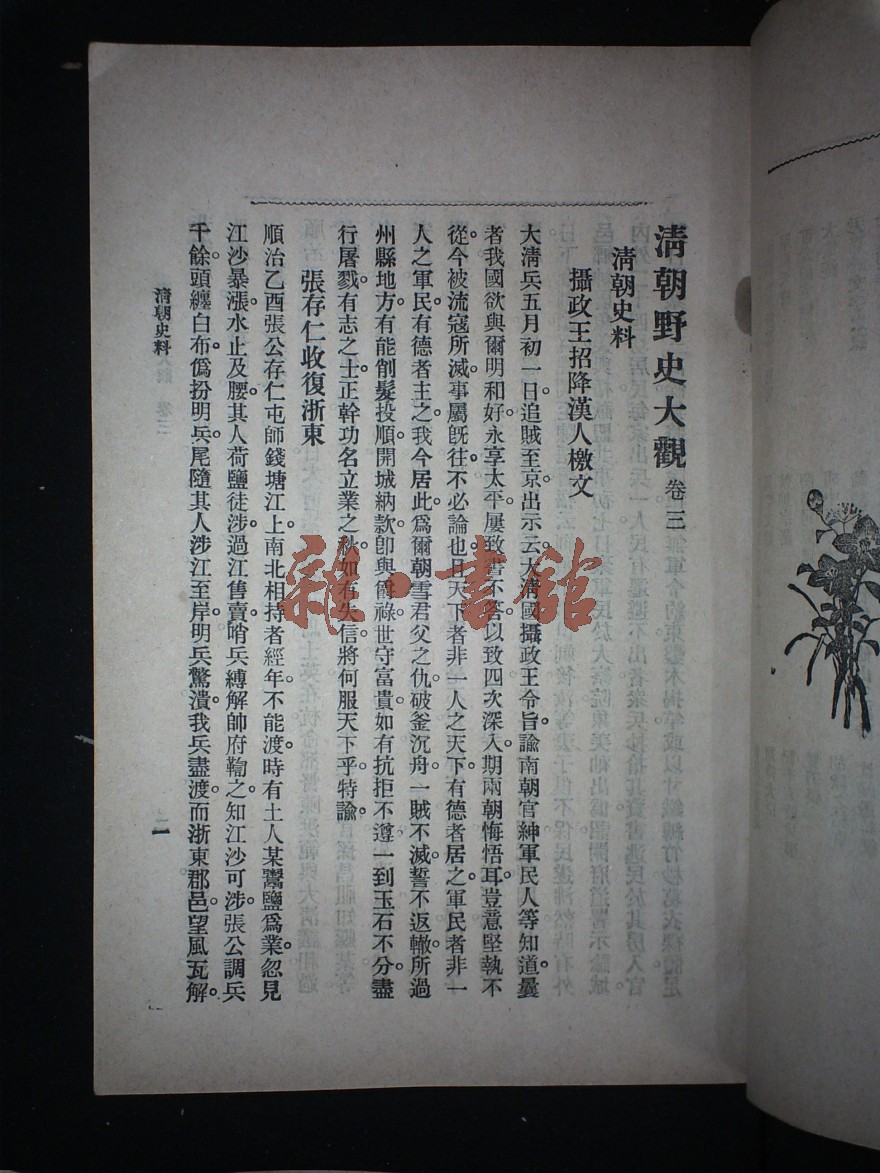 清朝野史大觀 卷三
清朝史料
攝政王招降漢人檄文
大淸兵五月初一日追賊至京出示云大淸國攝政王令旨諭南朝官紳軍民人等知道曩
者我國欲與爾明和好永享太平屢致書不答以致四次深入期兩朝悔悟耳豈意堅執不
從今被流寇所滅事屬旣往不必論也且天下者非一人之天下有德者居之軍民者非一
人之軍民有德者主之我今居此爲爾朝雪君父之仇破釜沉舟一賊不滅誓不返轍所過
州縣地方有能削髮投順開城納款卽與爵祿世守富貴如有抗拒不遵一到玉石不分盡
行屠戮有志之士正幹功名立業之秋如有失信將何服天下乎特諭
張存仁收復浙東
順治乙酉張公存仁屯師錢塘江上南北相持者經年不能渡時有土人某鬻鹽爲業忽見
江沙暴漲水止及腰其人荷鹽徒涉過江售賣哨兵縛解帥府鞫之知江沙可涉張公調兵
千餘頭纏白布僞扮明兵尾隨其人涉江至岸明兵驚潰我兵盡渡而浙東郡邑望風瓦解
清朝史料
一
雜·書館